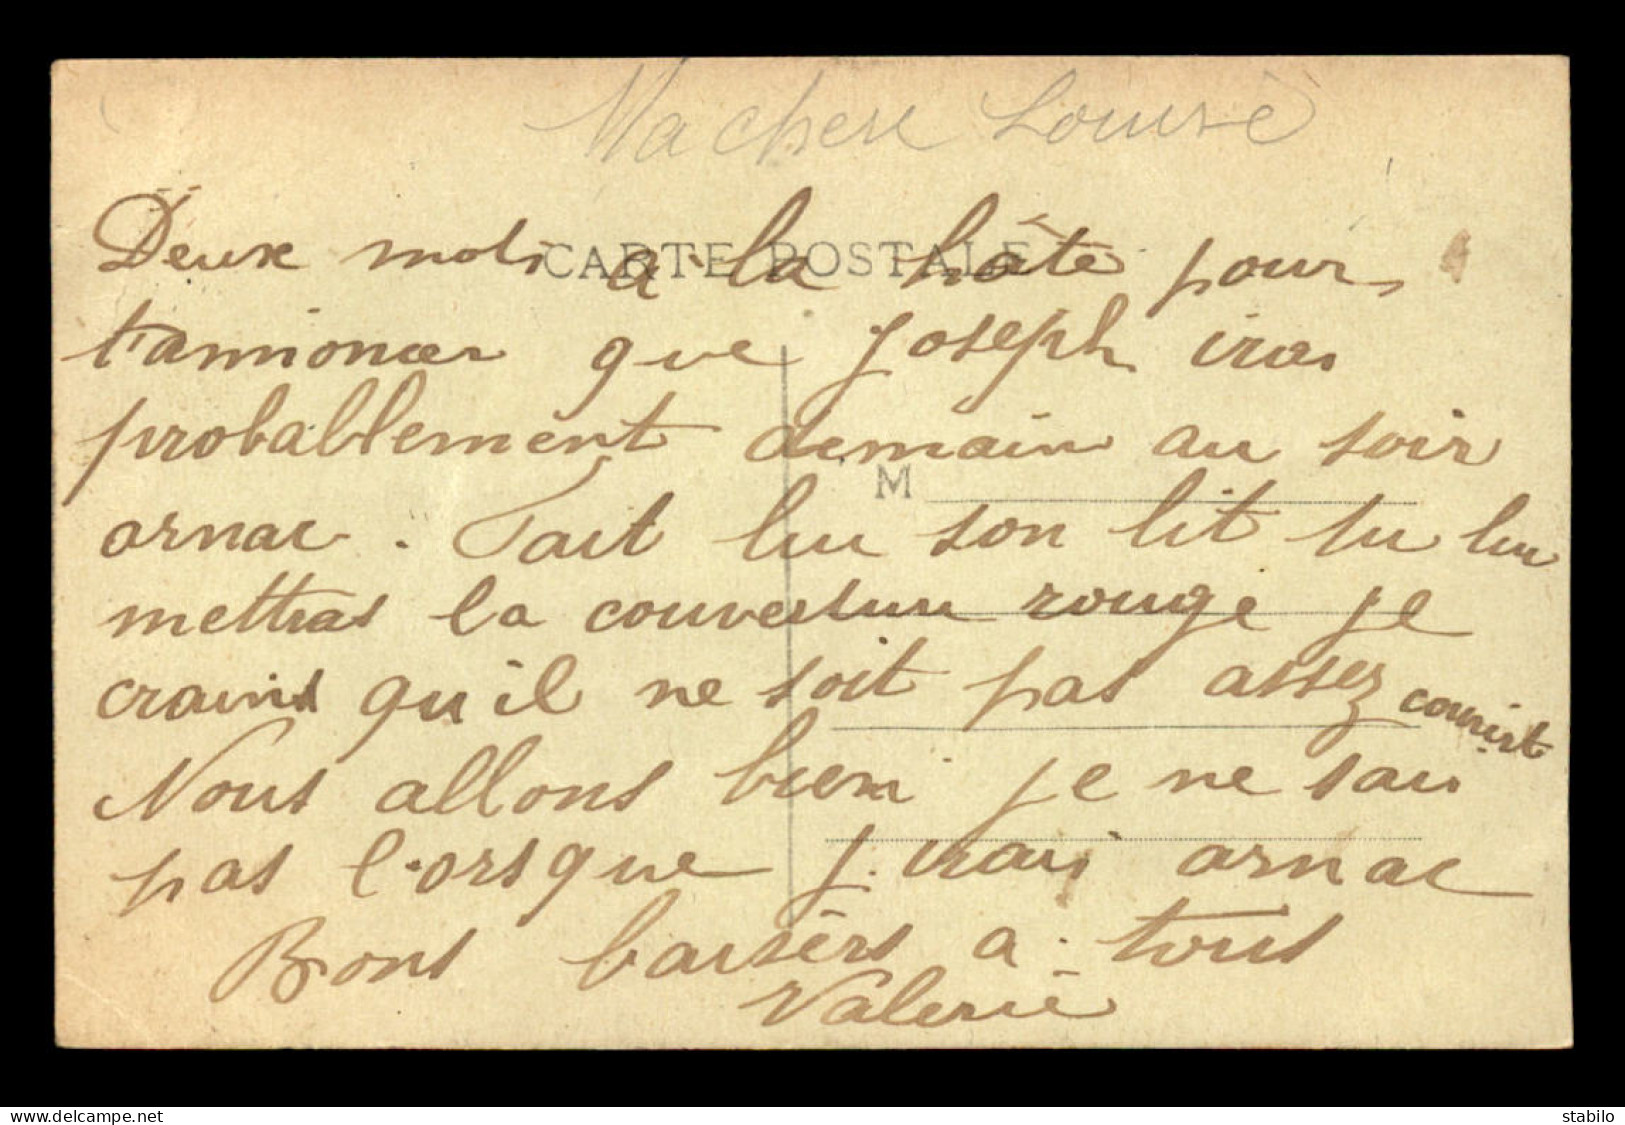 Ma chere Louise
CARTE POSTALE
Deux mots a la hâte pour
t'annoncer que Joseph iras
probablement demain au soir
arnac. Fait lui son lit tu lui
mettras la couverture rouge je
crains qu'il ne soit pas assez couvert
M
Nous allons bien je ne sais
pas l'orsque j'irais arnac
Bons baisers a tous
Valerie
delcampe.net
stabilo